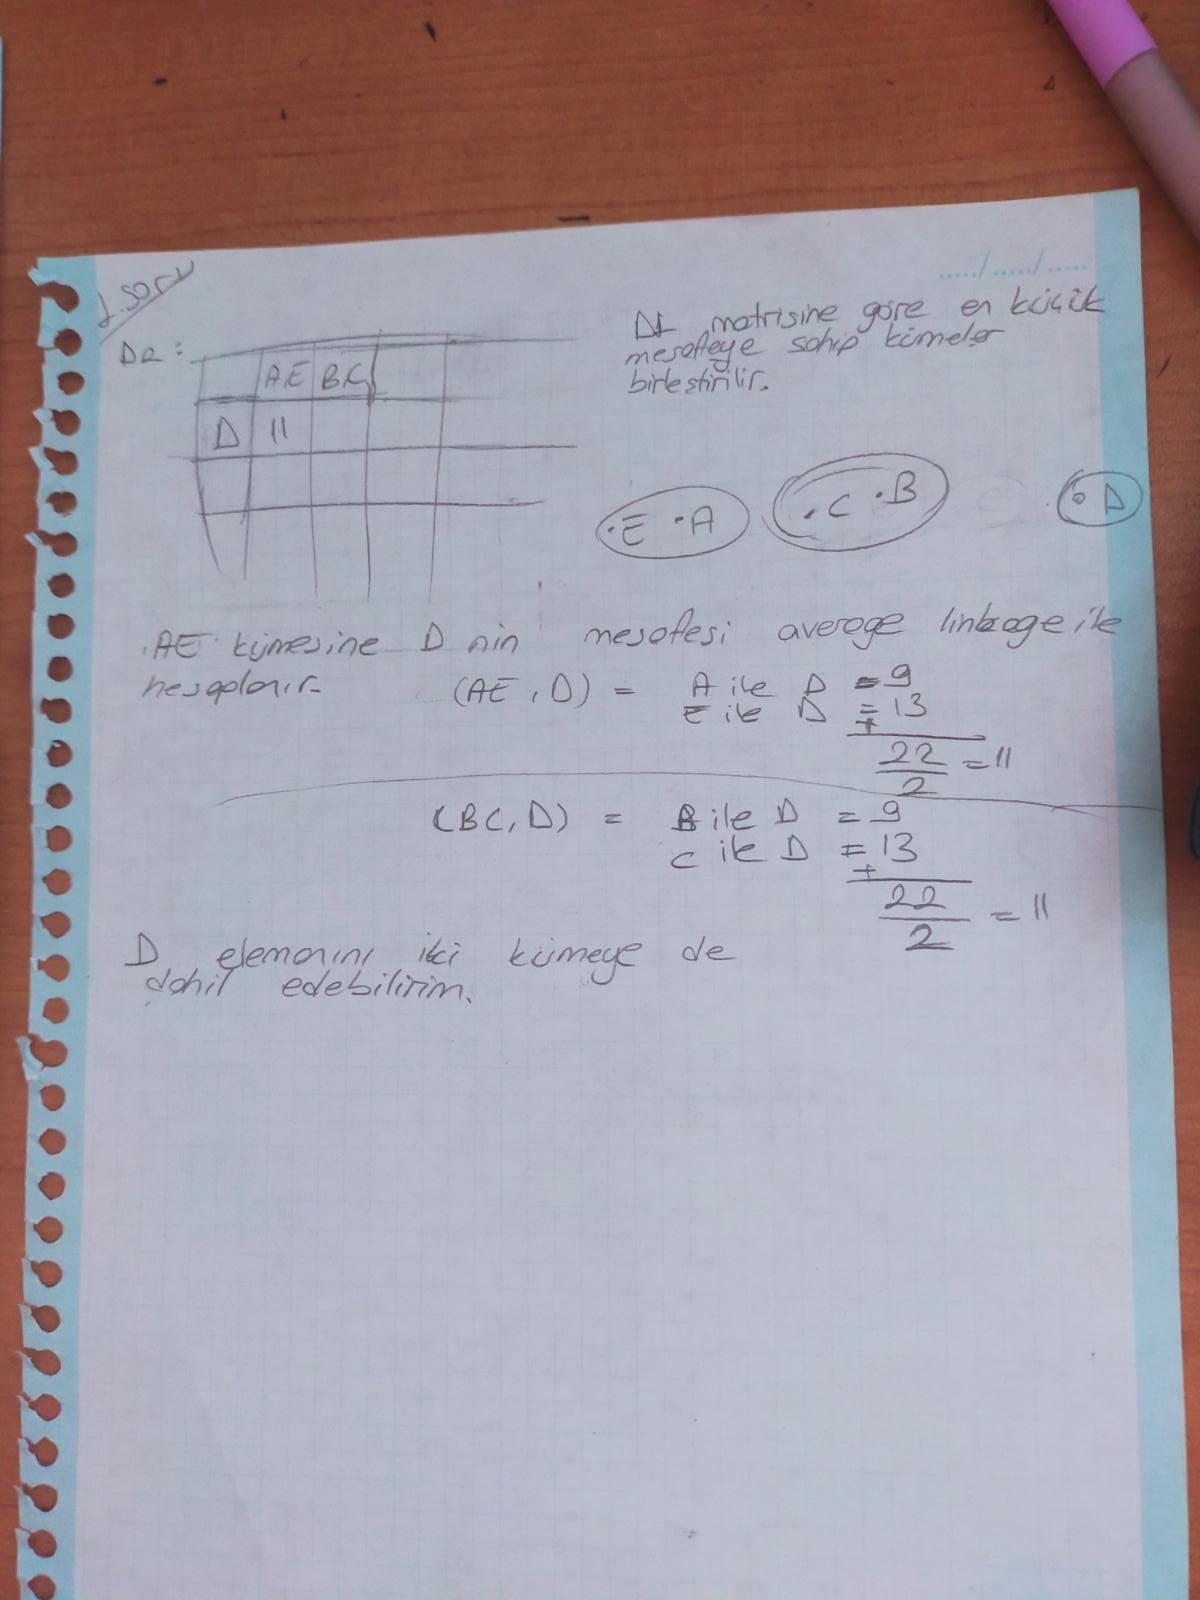 1.soru
...../...../.....
D1 matrisine göre en küçük
mesafeye sahip kümeler
birleştirilir.
D2:
AE BC
D 11
E A
C B
D
AE kümesine D nin mesafesi average linkage ile
hesaplanır.
(AE, D) = A ile D = 9
E ile D = 13
+
22
2
= 11
(BC, D) = B ile D = 9
C ile D = 13
+
22
2
= 11
D elemanını iki kümeye de
dahil edebilirim.